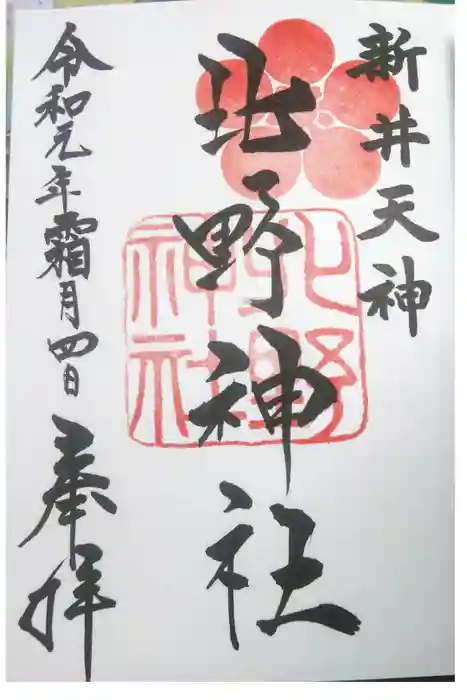 新井天神
北野神社
北野神社
令和元年霜月四日 奉拝